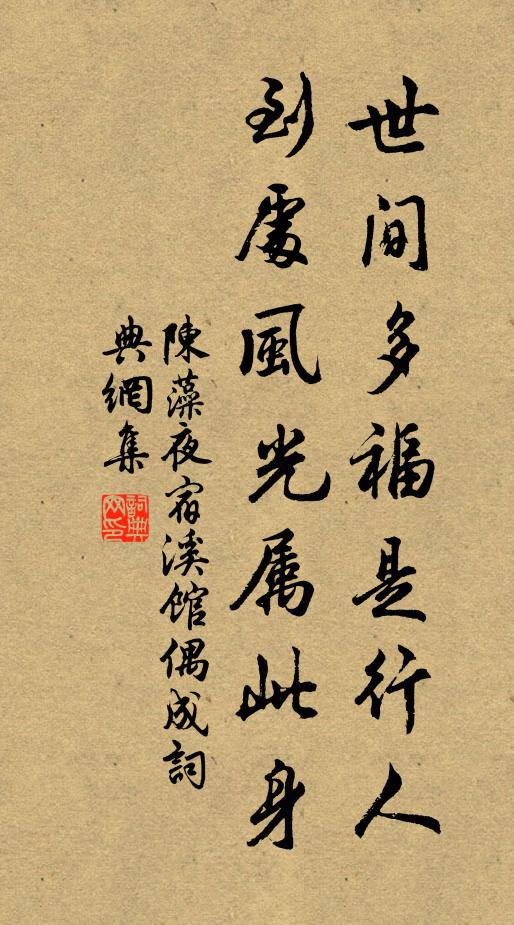 世间多福是行人
到處風光属此身
陳藻夜宿溪館偶成詞
典網集
詞典
网印